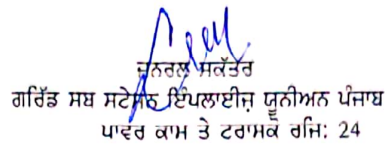 ਜਨਰਲ ਸਕੱਤਰ
ਗਰਿੱਡ ਸਬ ਸਟੇਸ਼ਨ ਇੰਪਲਾਈਜ਼ ਯੂਨੀਅਨ ਪੰਜਾਬ
ਪਾਵਰ ਕਾਮ ਤੇ ਟਰਾਸਕੋ ਰਜਿ: 24